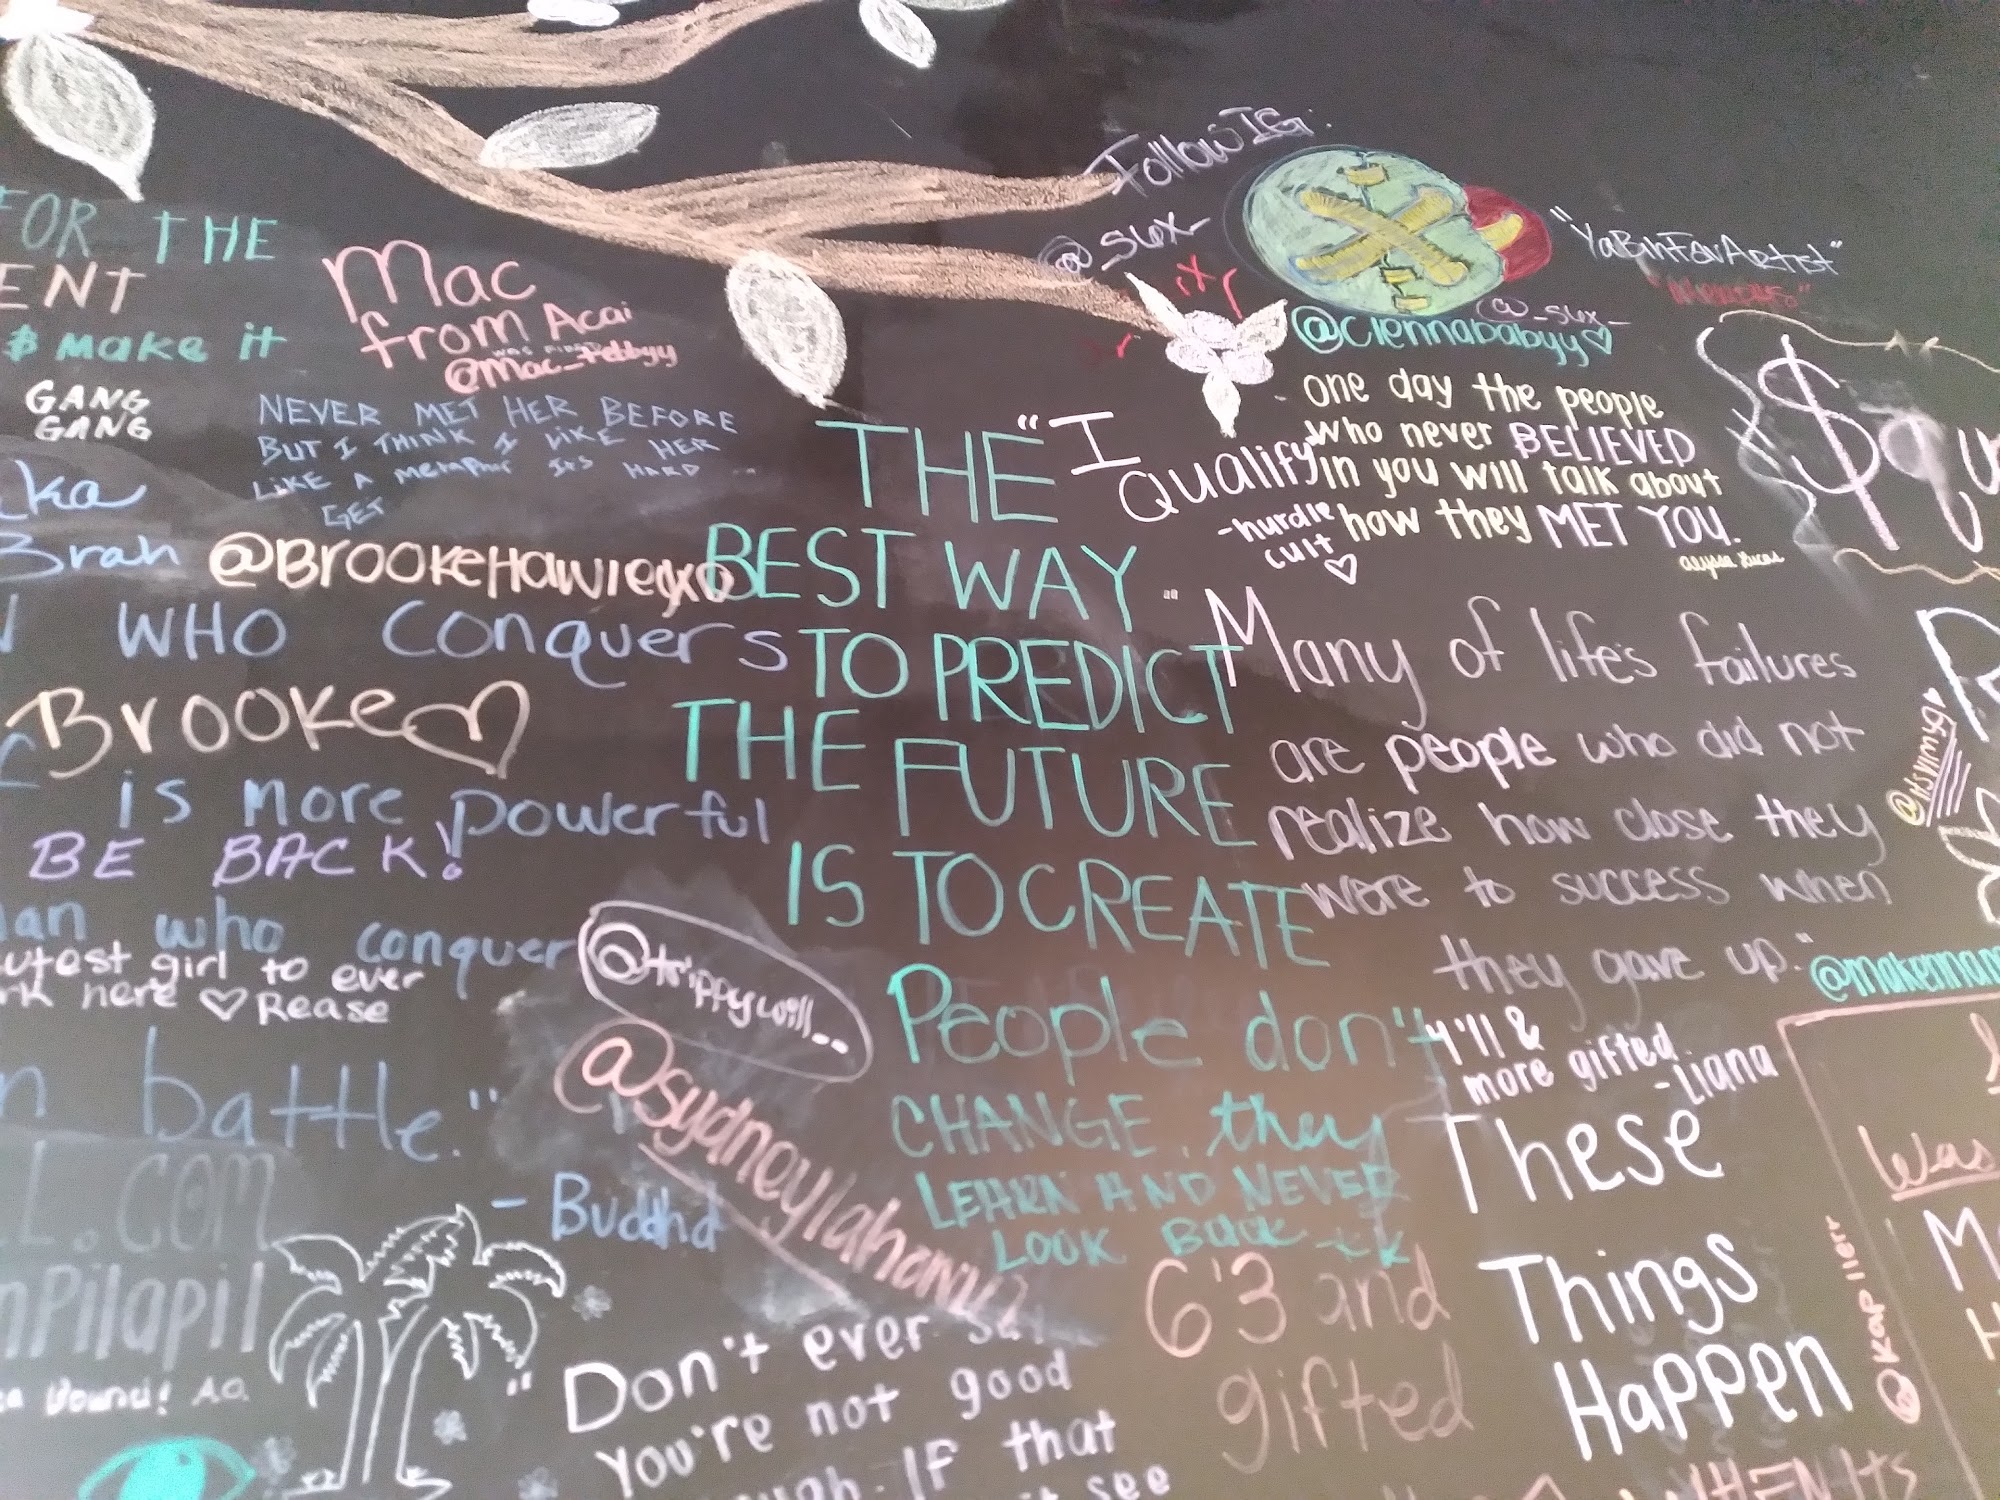 FOR THE
ENT
$ make it
GANG
GANG
ka
Brah
Mac
from Acai
@Mac_tebbyy
NEVER MET HER BEFORE
BUT I THINK I LIKE HER
LIKE A METAPHOR ITS HARD
GET
@BrookeHawiegxo
WHO conquers
Brooke
is more powerful
BE BACK!
an who conquer
utest girl to ever
rk here ♡ Rease
n battle."
- Buddha
L.com
nPilapil
A.O.
THE
BEST WAY
TO PREDICT
THE FUTURE
IS TO CREATE
@trippywill_
@sydneylahani
People don't
CHANGE, they
LEARN AND NEVER
LOOK Back -tk
"Don't ever
You're not good
ugh. IF that
see
6'3 and
gifted
Follow IG:
@_slex_
rXr
"YaBihFavArtist"
@_slex_
@Ciennababyy♡
"I
Qualify"
-hurdle
cult
♡
one day the people
who never BELIEVED
in you will talk about
how they MET YOU.
alyssa lucas
$qu
"Many of life's failures
are people who did not
realize how close they
were to success when
they gave up."
@makenna
@itsyimy
4'11 &
more gifted
-Liana
These
Things
Happen
@kapllerr
Was
WHEN Its